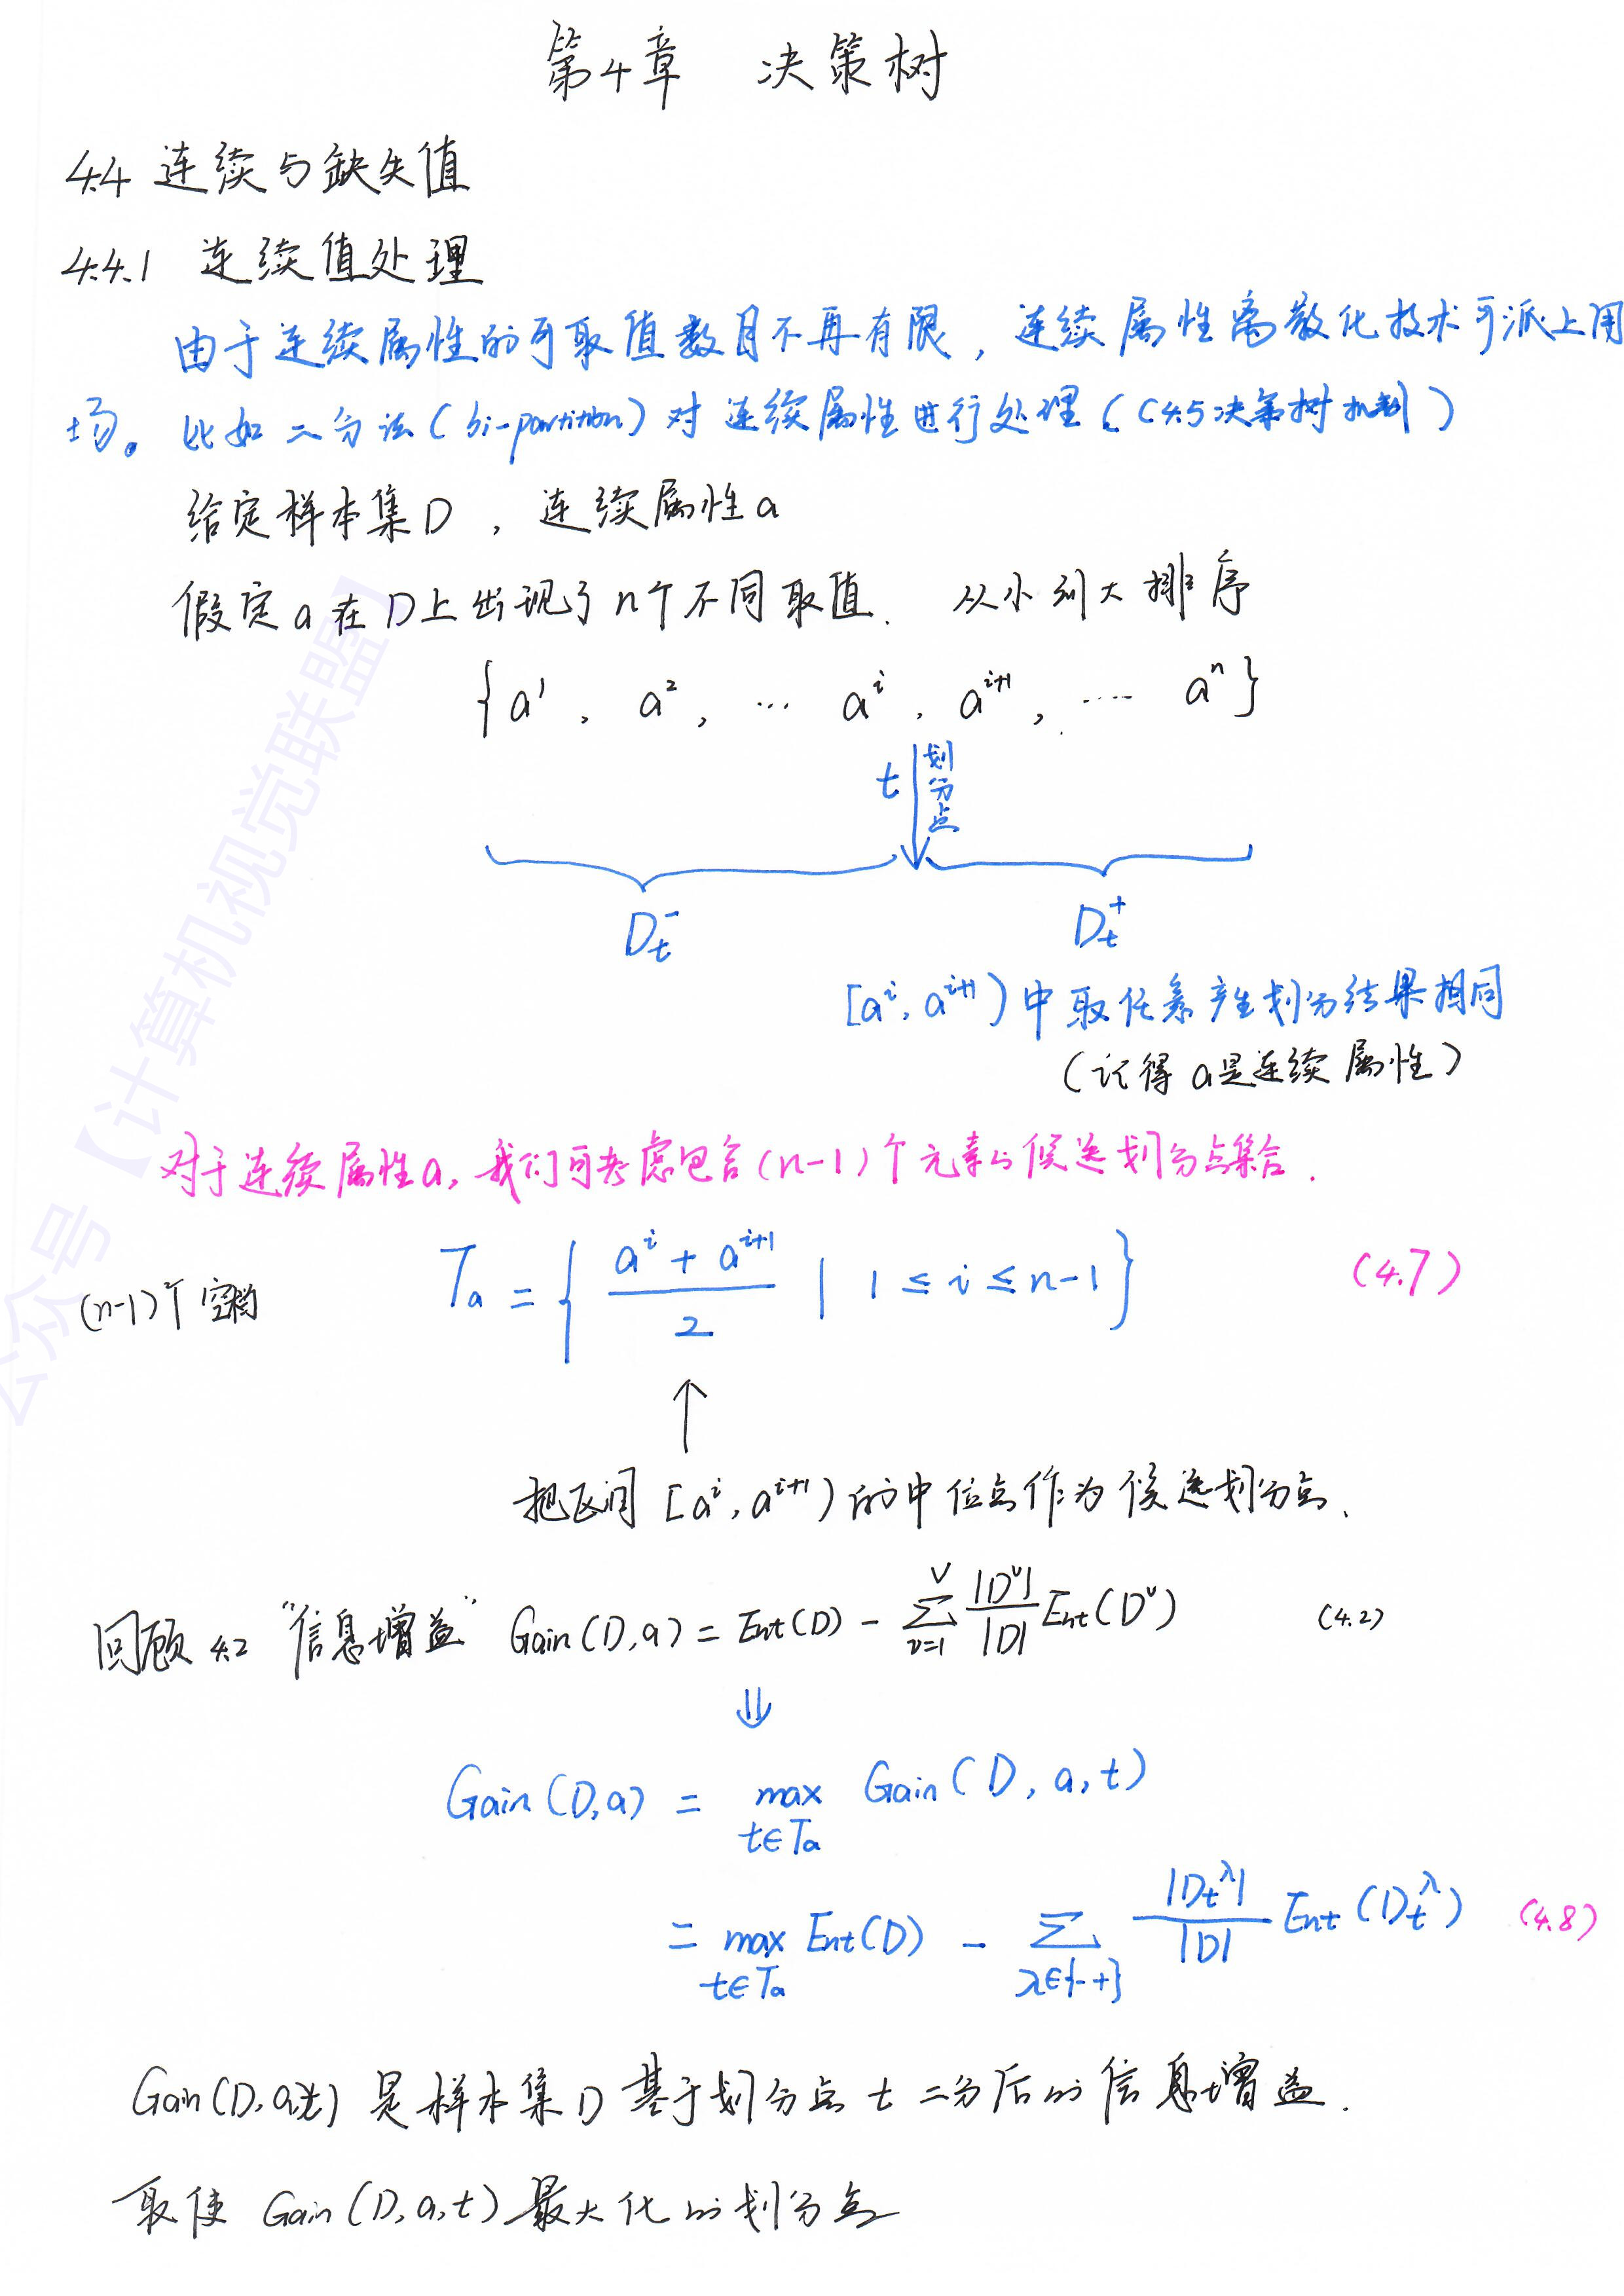 第4章 决策树
4.4 连续与缺失值
4.4.1 连续值处理
由于连续属性的可取值数目不再有限，连续属性离散化技术可派上用
场。比如二分法(bi-partition)对连续属性进行处理(C4.5决策树机制)
给定样本集D，连续属性a
假定a在D上出现了n个不同取值. 从小到大排序
{a¹, a², … aⁱ, aⁱ⁺¹, …… aⁿ}
t 划分点
Dₜ⁻ Dₜ⁺
[aⁱ, aⁱ⁺¹)中取任意产生划分结果相同
(记得a是连续属性)
对于连续属性a,我们可考虑包含(n-1)个元素的候选划分点集合.
(n-1)个空档 Tₐ = { (aⁱ + aⁱ⁺¹)/2 | 1 ≤ i ≤ n-1 } (4.7)
↑
把区间[aⁱ, aⁱ⁺¹)的中位点作为候选划分点、
回顾4.2 "信息增益" Gain(D,a) = Ent(D) - ∑_{v=1}^{V} |Dᵛ|/|D| Ent(Dᵛ) (4.2)
⇓
Gain(D,a) = max_{t∈Tₐ} Gain(D, a, t)
= max_{t∈Tₐ} Ent(D) - ∑_{λ∈{- +}} |Dₜ^λ|/|D| Ent(Dₜ^λ) (4.8)
Gain(D,a,t)是样本集D基于划分点t二分后的信息增益.
取使Gain(D,a,t)最大化的划分点
公众号【计算机视觉联盟】